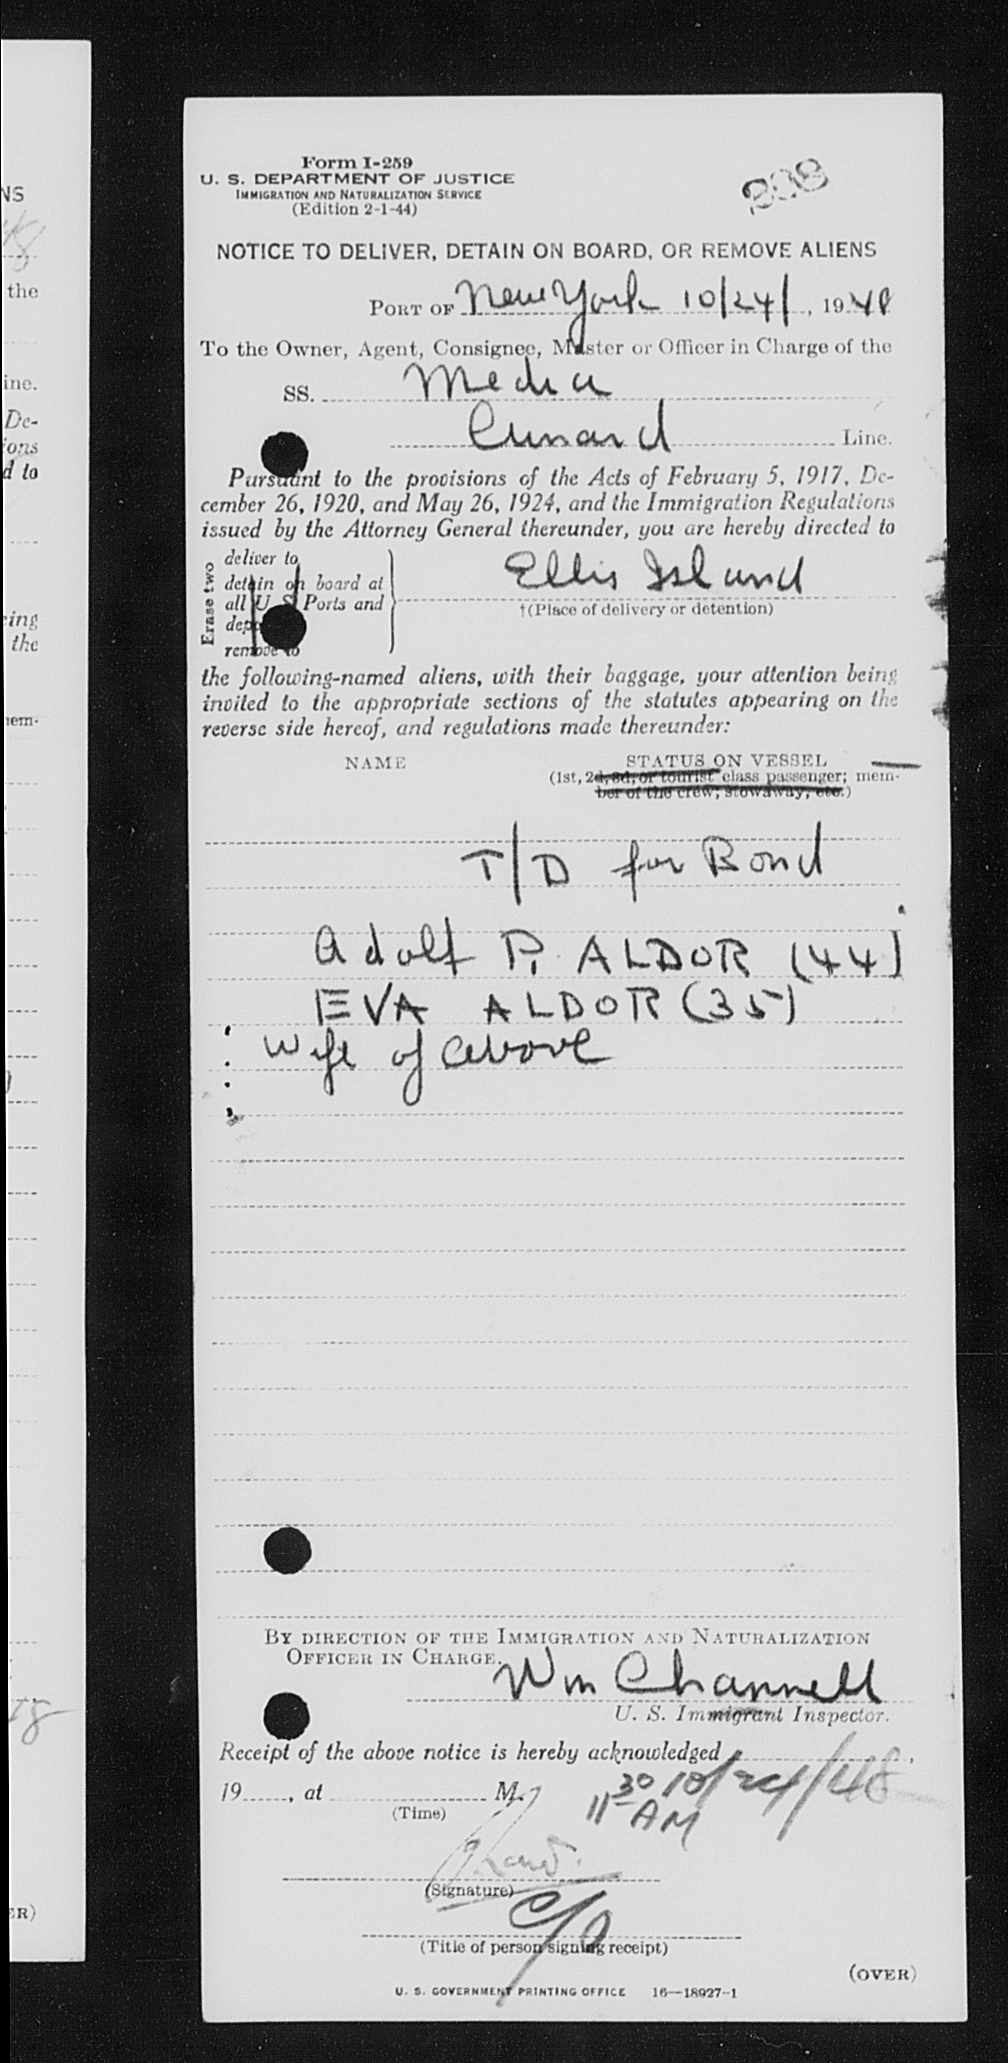 Form I-259
U. S. DEPARTMENT OF JUSTICE
IMMIGRATION AND NATURALIZATION SERVICE
(Edition 2-1-44)
NOTICE TO DELIVER, DETAIN ON BOARD, OR REMOVE ALIENS
PORT OF New York 10/24/, 1948
To the Owner, Agent, Consignee, Master or Officer in Charge of the
SS. Media
Cunard Line.
Pursuant to the provisions of the Acts of February 5, 1917, De-
cember 26, 1920, and May 26, 1924, and the Immigration Regulations
issued by the Attorney General thereunder, you are hereby directed to
Erase two
deliver to
detain on board at
all U S Ports and
remove to
Ellis Island
†(Place of delivery or detention)
the following-named aliens, with their baggage, your attention being
invited to the appropriate sections of the statutes appearing on the
reverse side hereof, and regulations made thereunder:
NAME STATUS ON VESSEL
(1st, 2d, 3d, or tourist class passenger; mem-
ber of the crew; stowaway, etc.)
T/D for Bond
Adolf P. ALDOR (44)
EVA ALDOR (35)
Wife of above
BY DIRECTION OF THE IMMIGRATION AND NATURALIZATION
OFFICER IN CHARGE.
Wm Channell
U. S. Immigrant Inspector.
Receipt of the above notice is hereby acknowledged
19, at M. 11 30 AM 10/24/48
(Time)
(Signature)
C/O
(Title of person signing receipt)
(OVER)
U. S. GOVERNMENT PRINTING OFFICE 16—18927-1
NS
the
ine.
De-
ions
d to
ing
the
nem-
ER)